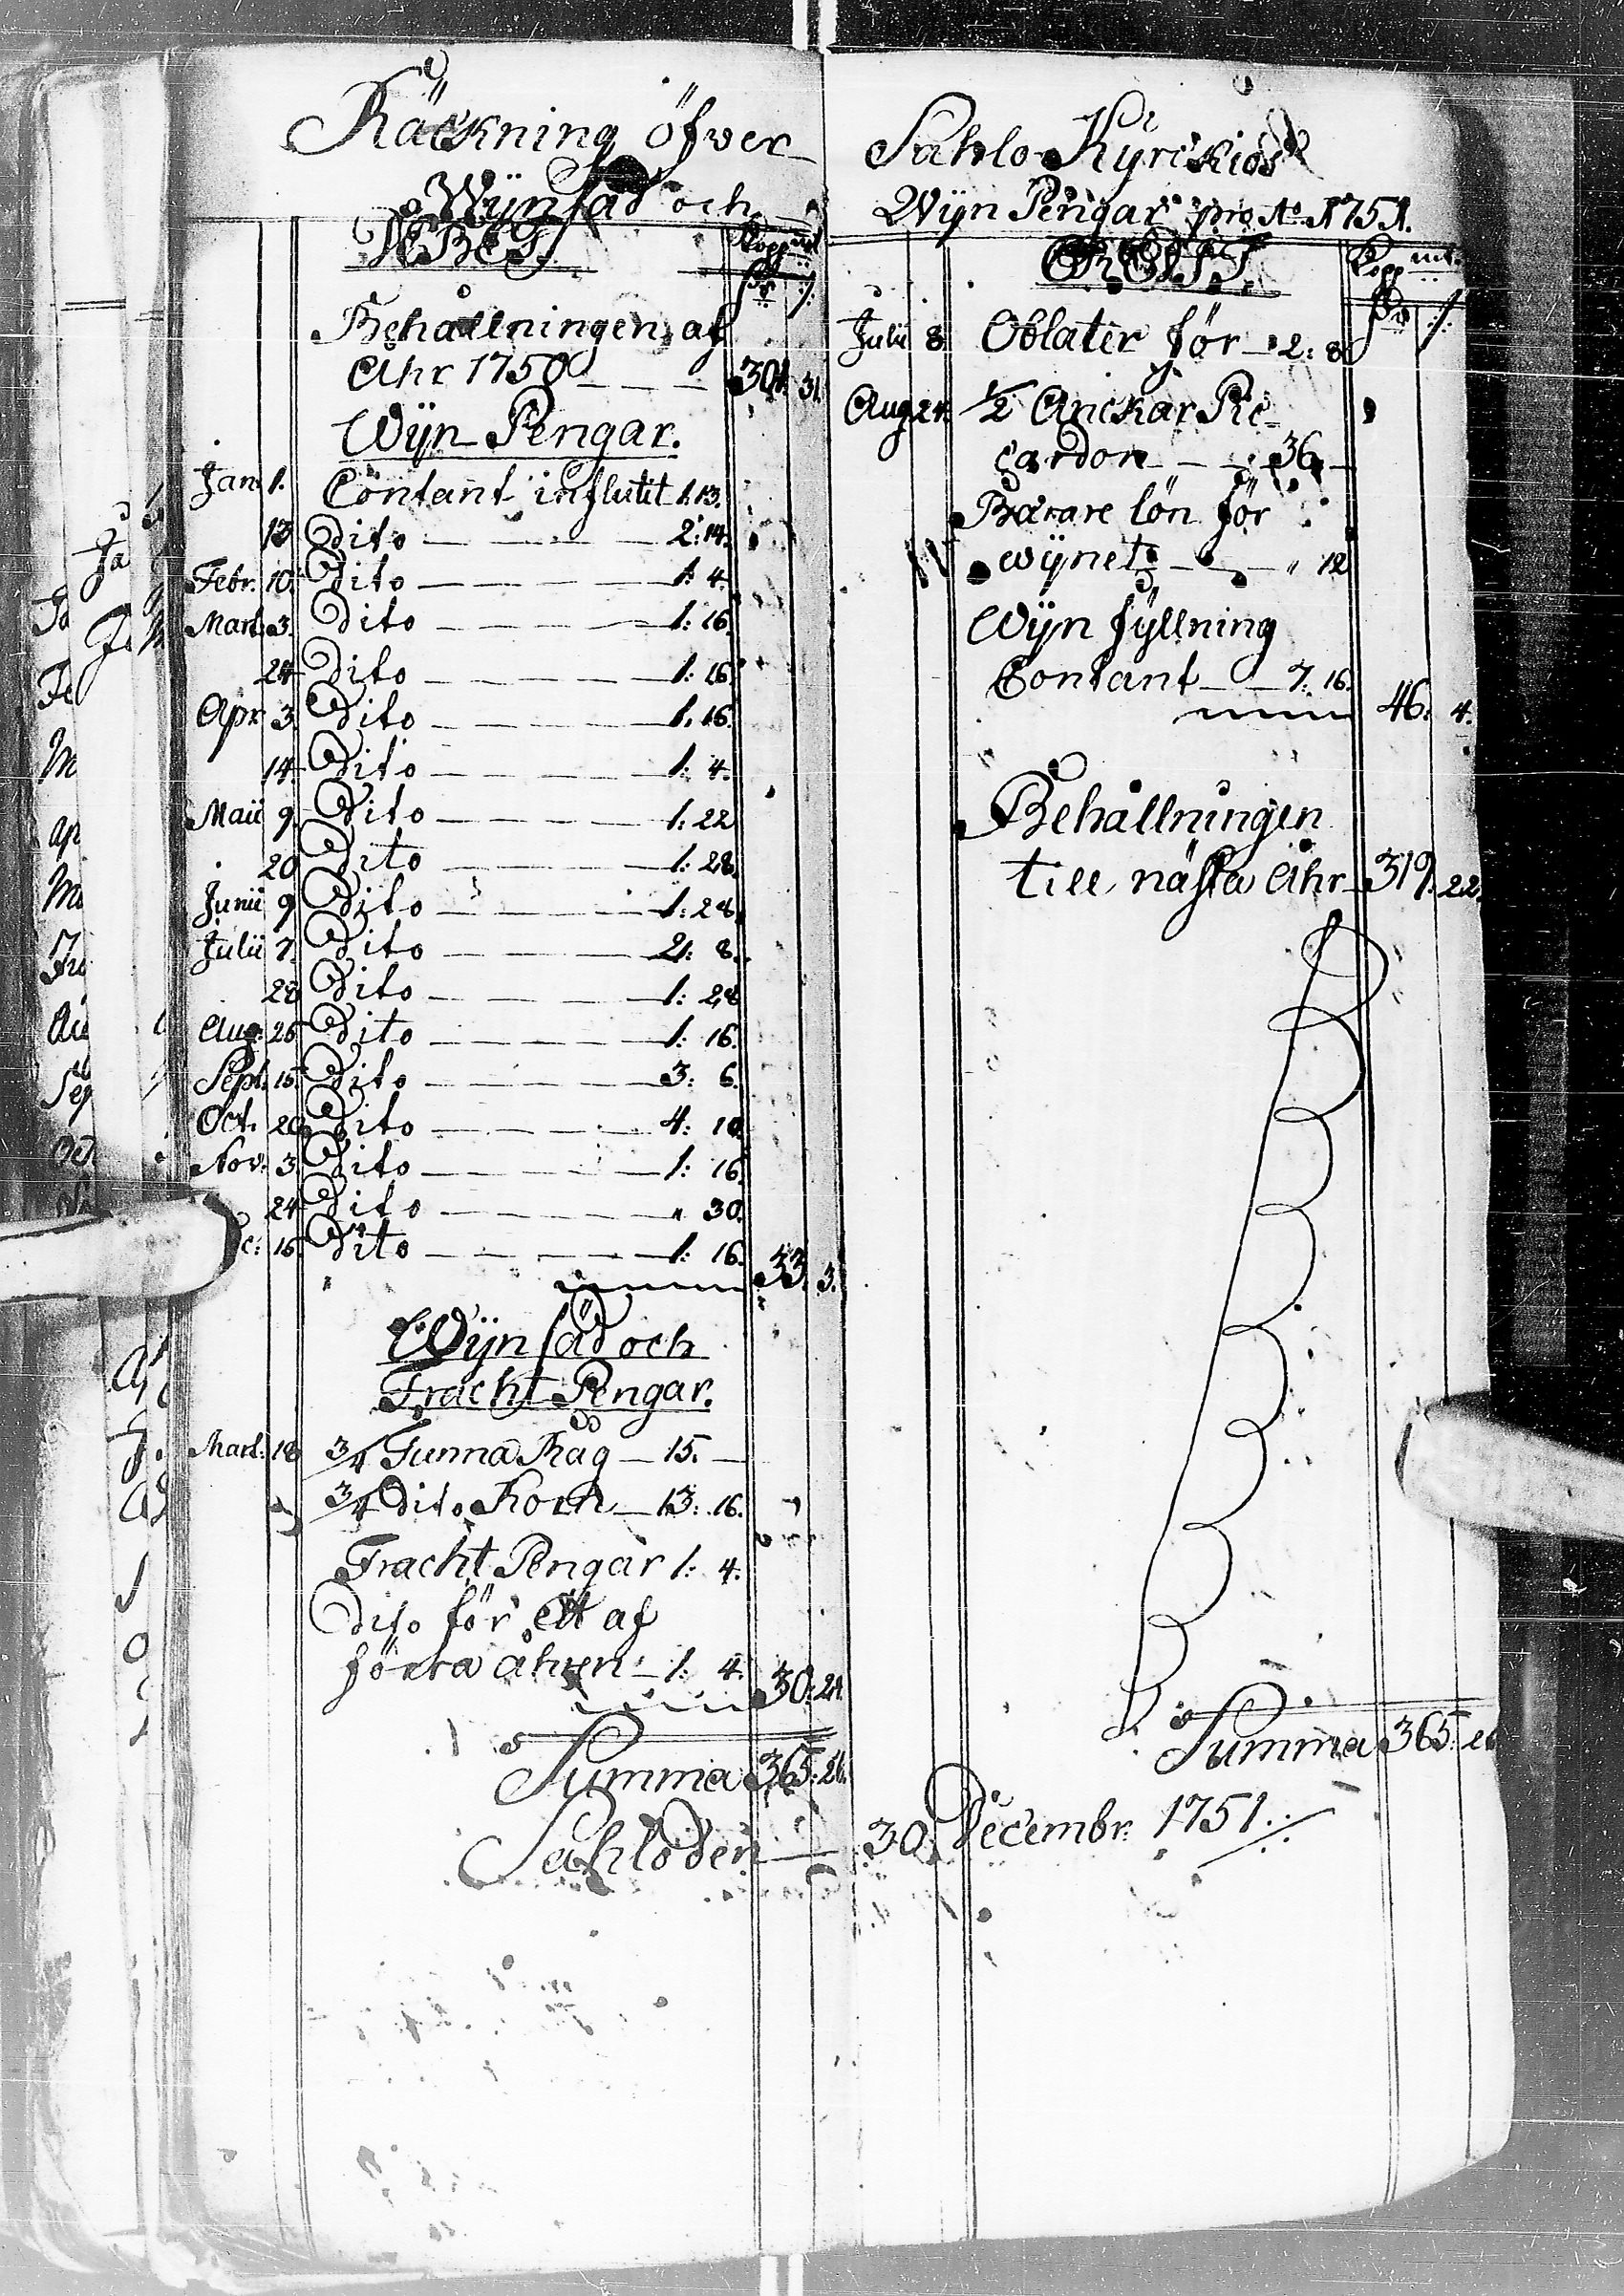 Räckning öfver
Wijnsäd och
DEBET.
Kopp mt
Dr ./.
Behållningen af
Åhr 1750 — — — 301. 31.
Wijn Pengar.
Jan: 1. Contant influtit 1: 13.
13 Dito — — — — 2: 14.
Febr. 10. Dito — — — — 1: 4.
Mart: 3. Dito — — — — 1: 16.
24 Dito — — — — 1: 16.
Apr 3. Dito — — — — 1: 16.
14. Dito — — — — 1: 4.
Maii 9. Dito — — — — 1: 22
20 Dito — — — — 1: 28.
Junii 9 Dito — — — — 1: 28.
Julii 7. Dito — — — — 2: 8.
28 Dito — — — — 1: 28
Aug: 25 Dito — — — — 1: 16.
Sept: 15. Dito — — — — 3: 6.
Oct. 20 Dito — — — — 4: 10.
Nov: 3. Dito — — — — 1: 16.
24 Dito — — — — " 30.
c: 15. Dito — — — — 1: 16.
33. 3.
Wijnsäd och
Fracht Pengar.
Mart: 18 3/4 Tunna Råg — 15. —
3/4 Dito Korn — 13: 16.
Fracht Pengar 1: 4.
Dito för ett af
förra åhren — 1: 4.
30: 24.
Summa 365: 26.
Sahlo den
Sahlo Kyrckios
Wijn Pengar pro Ao 1751.
CREDIT.
Kopp mt.
Dr ./.
Julii 8. Oblater för — 2: 8
Aug 24. 1/2 Anckar Pic-
cardon — — 36. —
Bärare lön för
wijnet — — " 12
Wijn fyllning
Contant — — 7: 16.
46. 4.
Behållningen
till nästa Åhr 319. 22.
Summa 365: 26
30. Decembr: 1751.